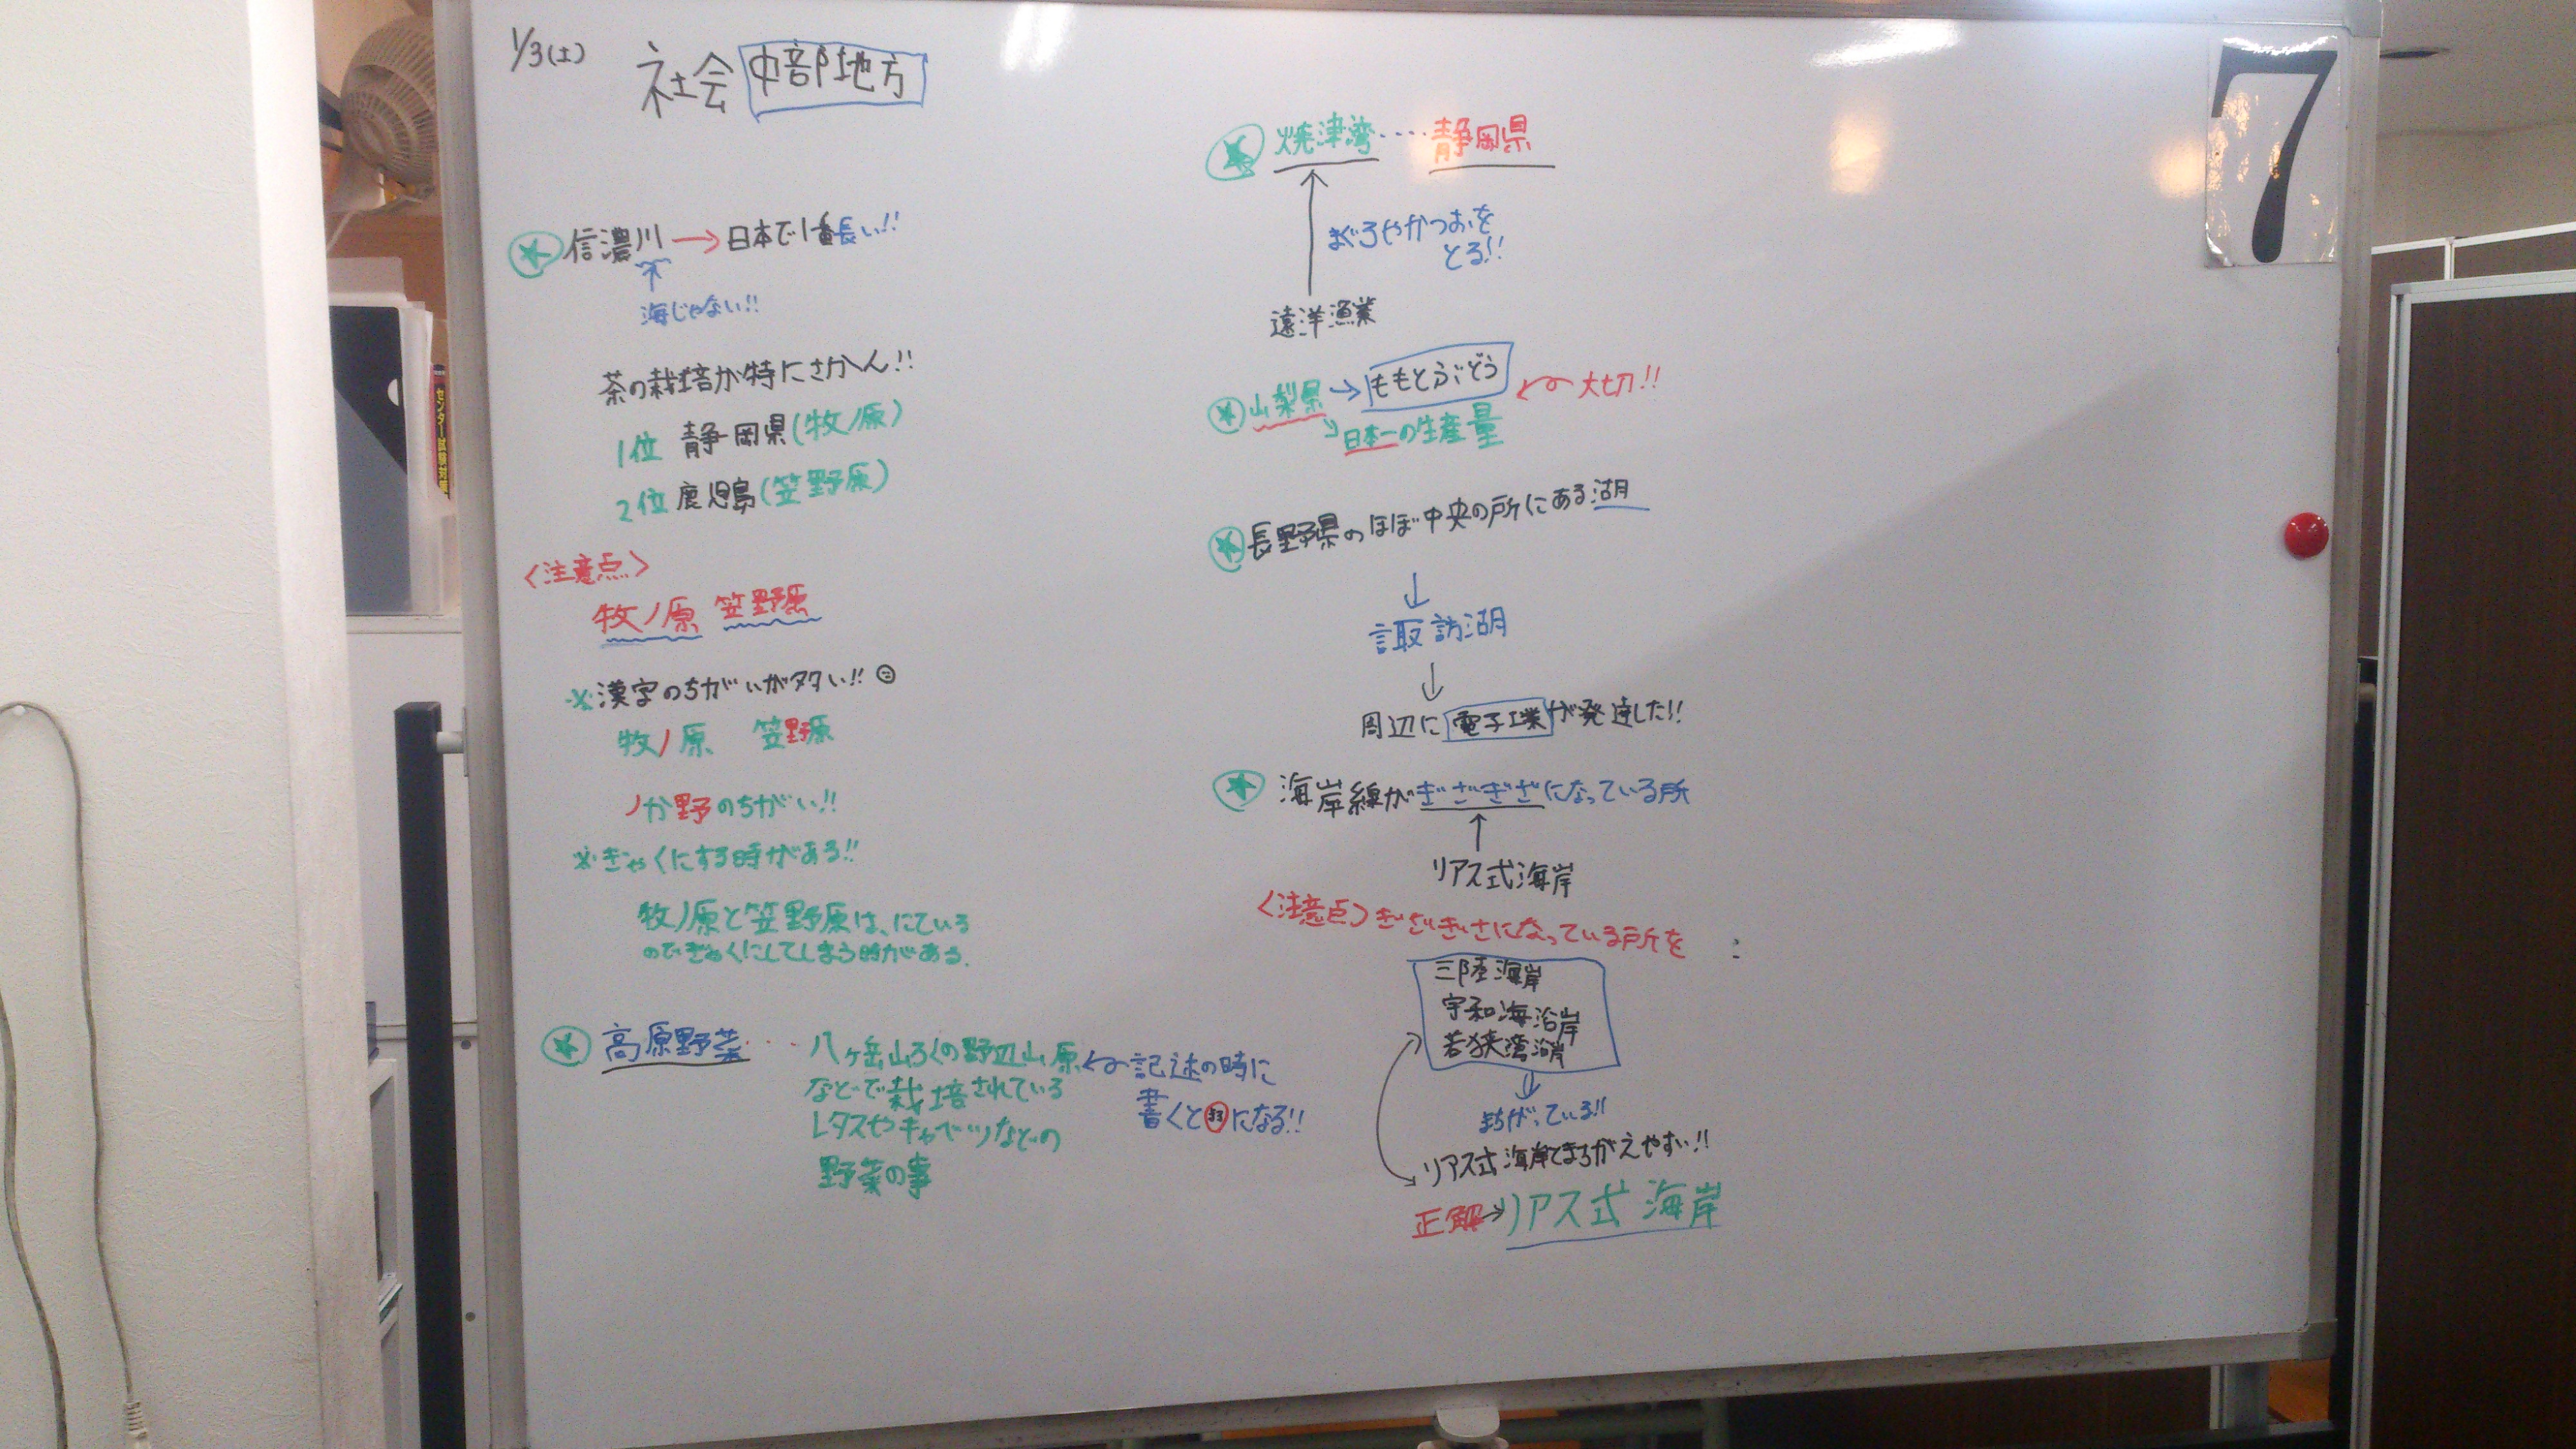 1/3(土)
社会 中部地方
信濃川→日本で1番長い!!
↑
海じゃない!!
茶の栽培が特にさかん!!
1位 静岡県(牧ノ原)
2位 鹿児島(笠野原)
<注意点>
牧ノ原 笠野原
※漢字のちがいが多い!!
牧ノ原 笠野原
ノか野のちがい!!
※ぎゃくにする時がある!!
牧ノ原と笠野原は、にている
のでぎゃくにしてしまう時がある.
高原野菜‥‥八ヶ岳山ろくの野辺山原
などで栽培されている
レタスやキャベツなどの
野菜の事
←記述の時に
書くと になる!!
焼津湾‥‥静岡県
↑
まぐろやかつおを
とる!!
遠洋漁業
山梨県→ももとぶどう ←大切!!
↘日本一の生産量
長野県のほぼ中央の所にある湖
↓
諏訪湖
↓
周辺に電子工業が発達した!!
海岸線がぎざぎざになっている所
↑
リアス式海岸
<注意点>ぎざぎさになっている所を
三陸海岸
宇和海沿岸
若狭湾沿岸
↓
まちがっている!!
リアス式海岸でまちがえやすい!!
正解→リアス式海岸
7
センター試験対策